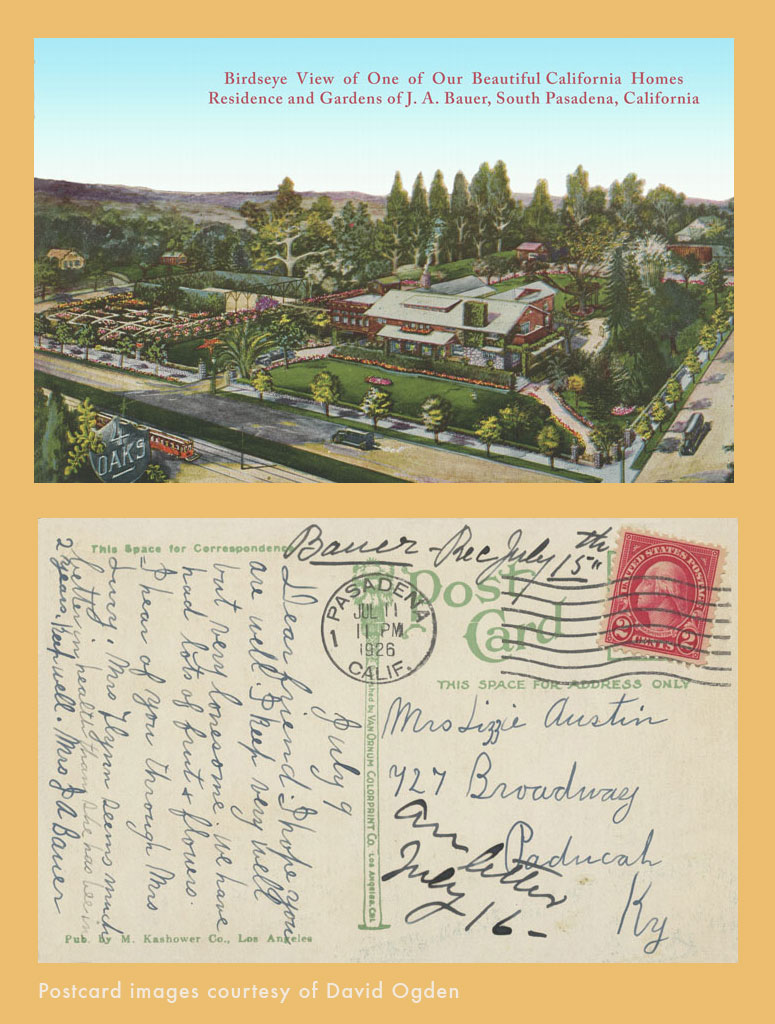 Birdseye View of One of Our Beautiful California Homes
Residence and Gardens of J. A. Bauer, South Pasadena, California
4
OAKS
This Space for Correspondence
Bauer - Rec July 15th
July 9
Dear friend. I hope you
are well. I keep very well
but very lonesome. We have
had lots of fruit & flowers.
I hear of you through Mrs
Lucy. Mrs Flynn seems much
better in health than she has been in
2 years. Keep well. Mrs J A Bauer
Pub. by M. Kashower Co., Los Angeles
Published by Van Ornum Colorprint Co. Los Angeles, Cal.
PASADENA
JUL 11
11 PM
1926
CALIF.
1
Post
Card
UNITED STATES POSTAGE
2 CENTS 2
THIS SPACE FOR ADDRESS ONLY
Mrs Lizzie Austin
727 Broadway
Paducah
Ky
Ans letter
July 16-
Postcard images courtesy of David Ogden